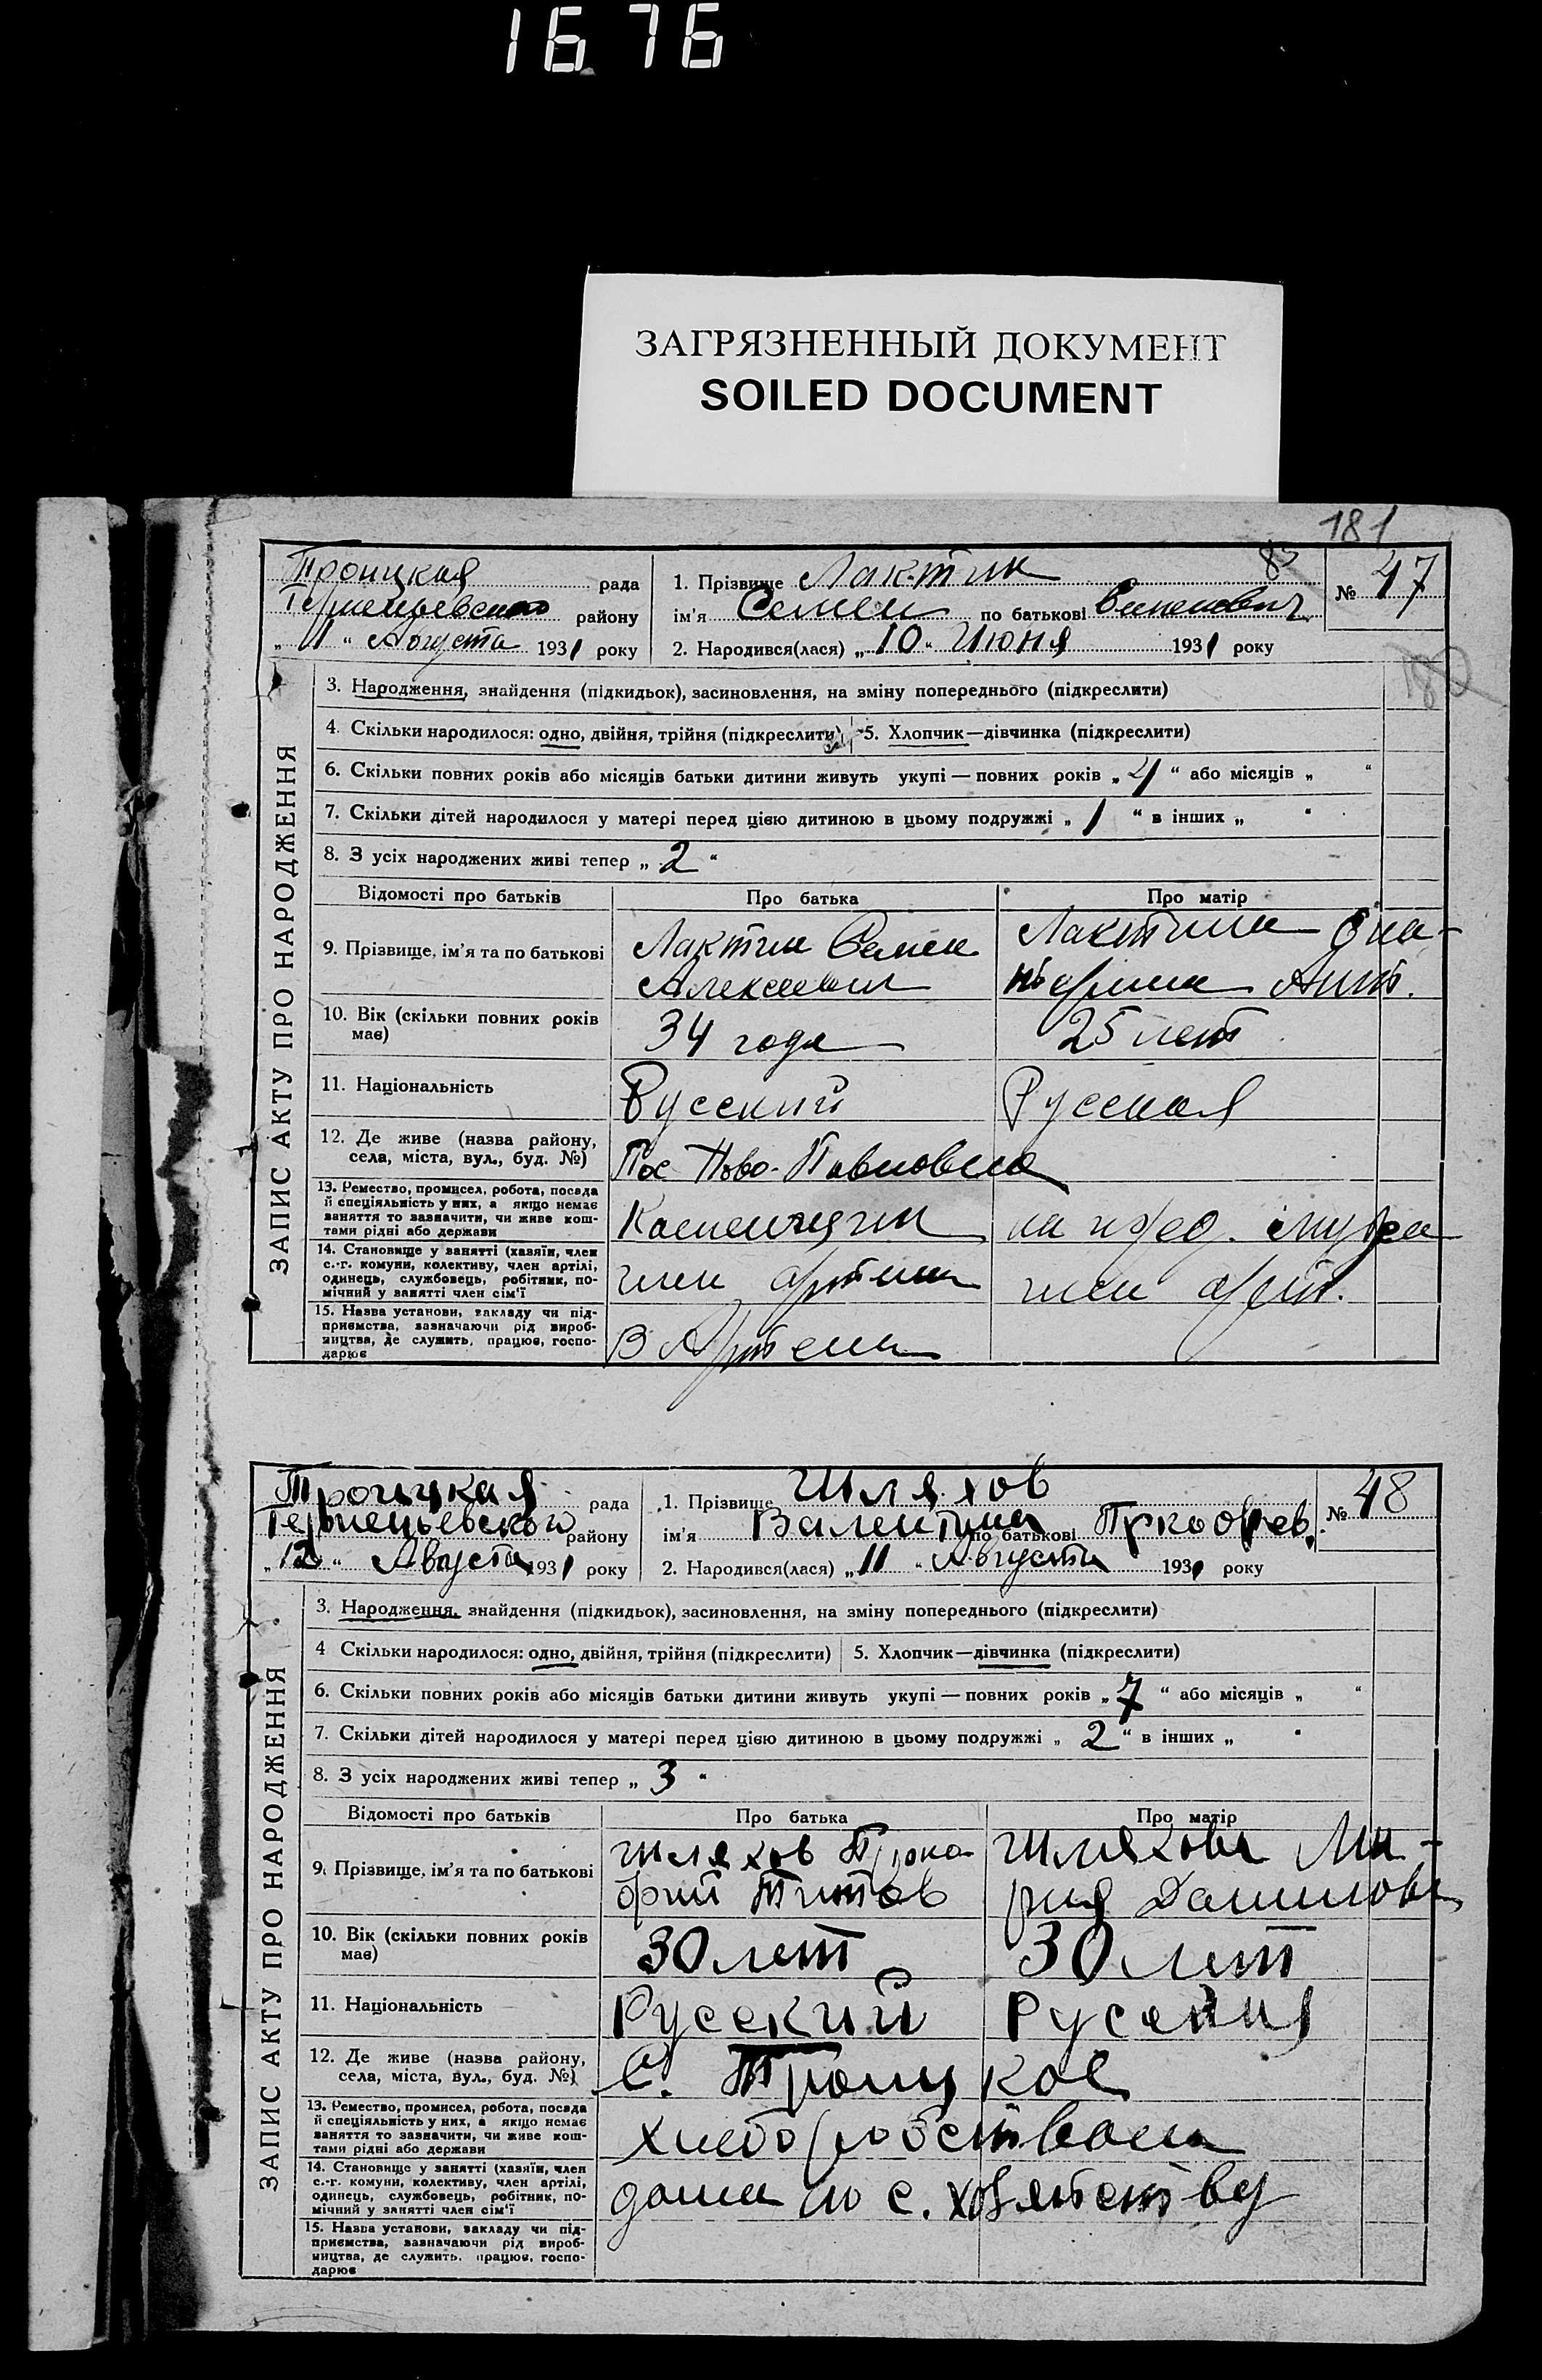 1676
ЗАГРЯЗНЕННЫЙ ДОКУМЕНТ
SOILED DOCUMENT
181
Троицкая рада
району
„ 1 “ Августа 1931 року
1. Прізвище Лактин
ім'я Семен по батькові Семенович
2. Народився(лася) „ 10 “ Июня 1931 року
№ 47
ЗАПИС АКТУ ПРО НАРОДЖЕННЯ
3. Народження, знайдення (підкидьок), засиновлення, на зміну попереднього (підкреслити)
4. Скільки народилося: одно, двійня, трійня (підкреслити) 5. Хлопчик—дівчинка (підкреслити)
6. Скільки повних років або місяців батьки дитини живуть укупі — повних років „ 4 “ або місяців „ “
7. Скільки дітей народилося у матері перед цією дитиною в цьому подружжі „ 1 “ в інших „ “
8. З усіх народжених живі тепер „ 2 “
Відомості про батьків Про батька Про матір
9. Прізвище, ім'я та по батькові Лактин Семен
Алексеевич
10. Вік (скільки повних років має) 34 года 25 лет
11. Національність Русский Русская
12. Де живе (назва району, села, міста, вул., буд. №) Пос Ново-Павловка
13. Ремество, промисел, робота, посада й спеціяльність у них, а якщо немає заняття то зазначити, чи живе коштами рідні або держави
14. Становище у занятті (хазяїн, член с.-г. комуни, колективу, член артілі, одинець, службовець, робітник, помічний у занятті член сім'ї член артели член арт.
15. Назва установи, закладу чи підприємства, зазначаючи рід виробництва, де служить, працює, господарює В Артели
Троицкая рада
району
„ 12 “ Августа 1931 року
1. Прізвище Шляхов
ім'я Валентина по батькові
2. Народився(лася) „ 11 “ Августа 1931 року
№ 48
ЗАПИС АКТУ ПРО НАРОДЖЕННЯ
3. Народження, знайдення (підкидьок), засиновлення, на зміну попереднього (підкреслити)
4 Скільки народилося: одно, двійня, трійня (підкреслити) 5. Хлопчик—дівчинка (підкреслити)
6. Скільки повних років або місяців батьки дитини живуть укупі — повних років „ 7 “ або місяців „ “
7. Скільки дітей народилося у матері перед цією дитиною в цьому подружжі „ 2 “ в інших „ “
8. З усіх народжених живі тепер „ 3 “
Відомості про батьків Про батька Про матір
9. Прізвище, ім'я та по батькові Шляхов Шляхова Ма-
Титов рия Данилова
10. Вік (скільки повних років має) 30 лет 30 лет
11. Національність Русский Русская
12. Де живе (назва району, села, міста, вул., буд. №) С. Троицкое
13. Ремество, промисел, робота, посада й спеціяльність у них, а якщо немає заняття то зазначити, чи живе коштами рідні або держави хлеборобством
14. Становище у занятті (хазяїн, член с.-г. комуни, колективу, член артілі, одинець, службовець, робітник, помічний у занятті член сім'ї дома по с. хозяйству
15. Назва установи, закладу чи підприємства, зазначаючи рід виробництва, де служить, працює, господарює